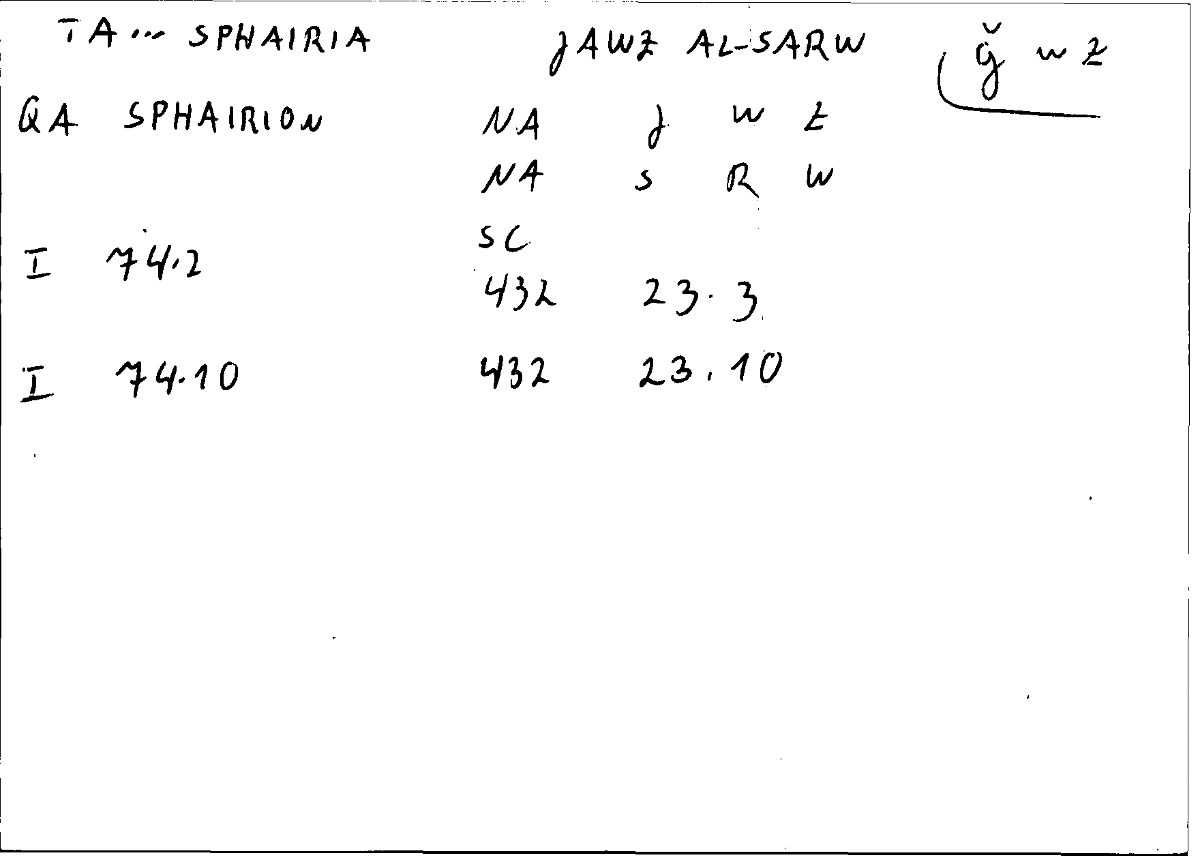 TA... SPHAIRIA JAWZ AL-SARW ǧ w z
QA SPHAIRION NA J W Z
NA S R W
SC
I 74.2
432 23.3
I 74.10 432 23.10